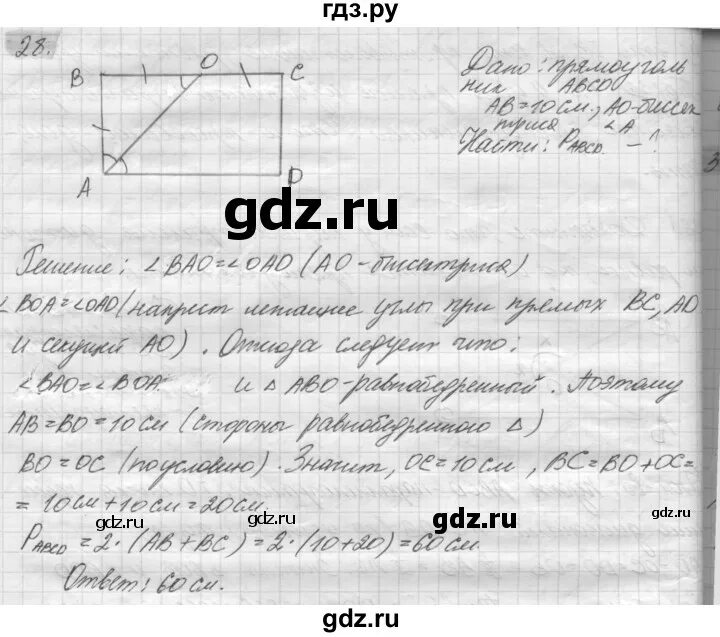 гдз.ру
28.
B O C
A D
Дано: прямоуголь
ник ABCD
AB=10см, AO-биссек
триса ∠A
Найти: P ABCD - ?
3
gdz.ru
Решение: ∠BAO=∠OAD (AO-биссектриса)
∠BOA=∠OAD (накрест лежащие углы при прямых BC, AD
и секущей AO). Отсюда следует что:
∠BAO=∠BOA и △ABO-равнобедренный. Поэтому
AB=BO=10см (стороны равнобедренного △)
BO=OC (по условию). Значит, OC=10см, BC=BO+OC=
=10см+10см=20см.
gdz.ru gdz.ru
P ABCD=2·(AB+BC)=2·(10+20)=60см.
Ответ: 60см.
gdz.ru